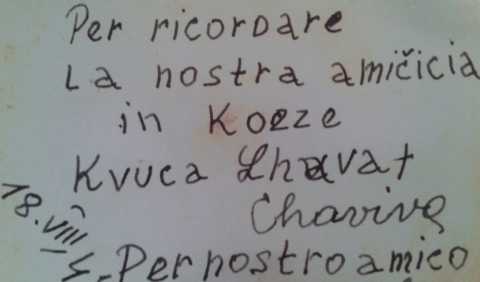 Per ricordare
La nostra amičicia
in Koeze
Kvuca Lhavat
Chaviva
18.VIII
Per nostro amico